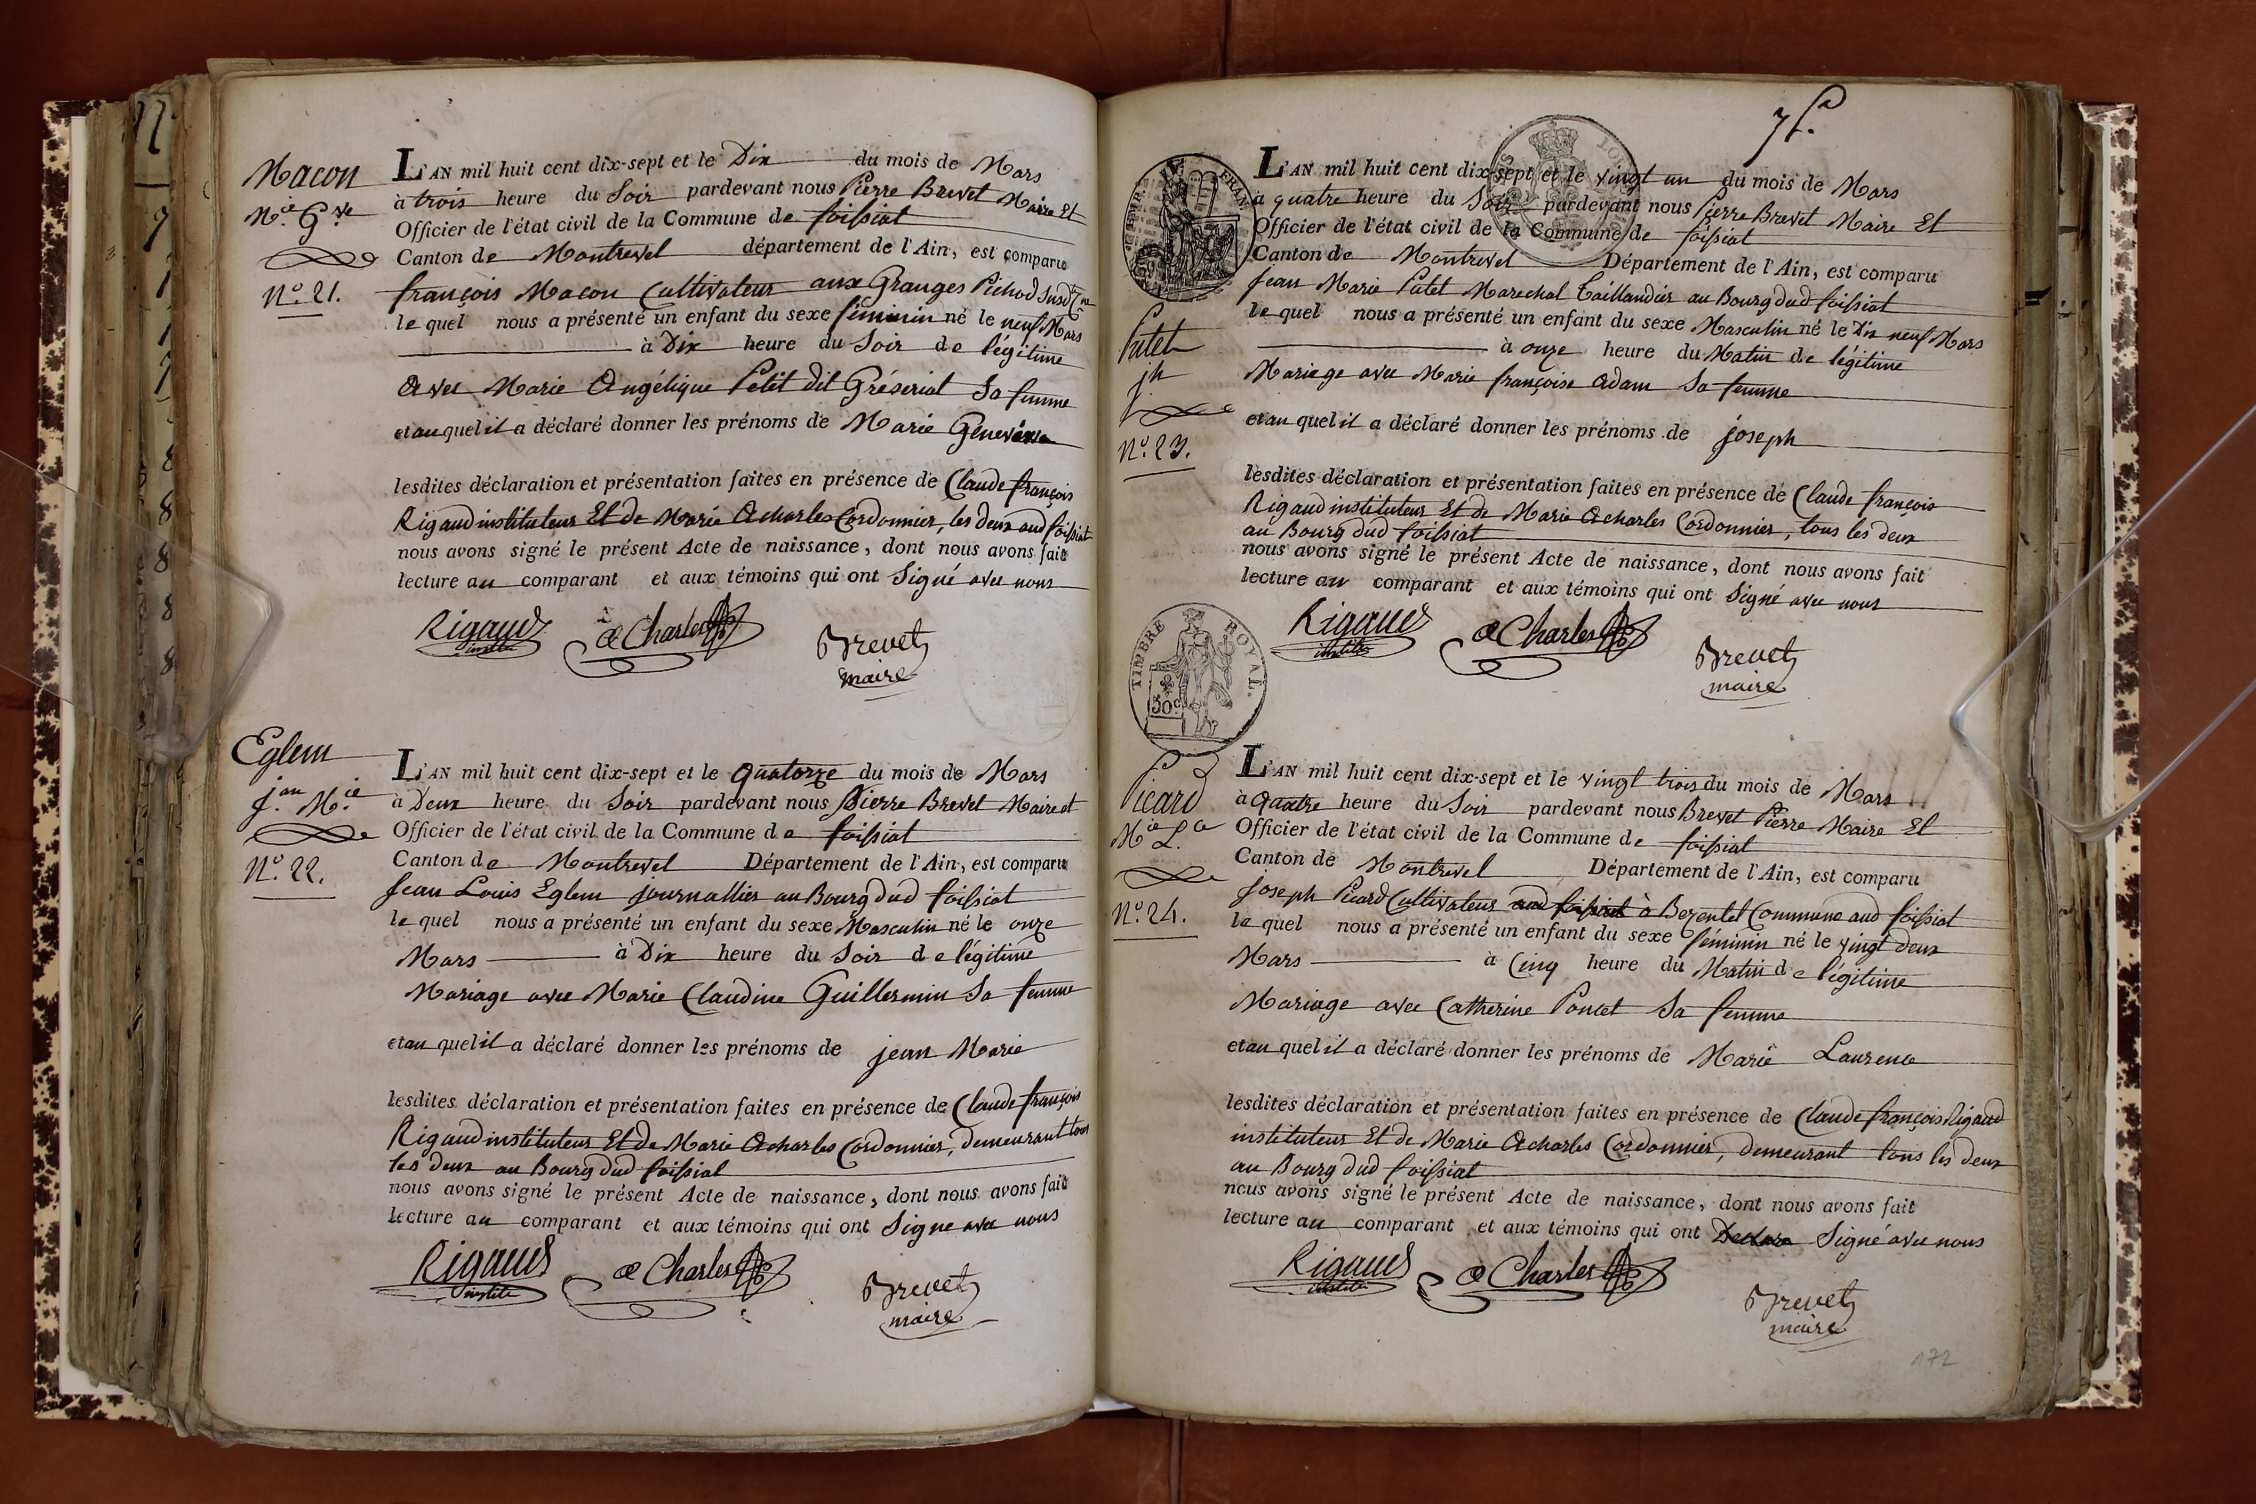 Macon
Mie Gve
No. 21.
L'AN mil huit cent dix-sept et le Dix du mois de Mars
à trois heure du Soir pardevant nous Pierre Brevet Maire Et
Officier de l'état civil de la Commune de foissiat
Canton de Montrevel département de l'Ain, est comparu
françois Macon Cultivateur aux Granges Pichod
le quel nous a présenté un enfant du sexe féminin né le neuf Mars
à Dix heure du Soir de légitime
avec Marie Angélique Petit dit Gréseriat Sa femme
et au quel il a déclaré donner les prénoms de Marie Genevieve
lesdites déclaration et présentation faites en présence de Claude françois
Rigaud instituteur Et de Marie Acharles Cordonnier, les deux aud foissiat
nous avons signé le présent Acte de naissance, dont nous avons fait
lecture au comparant et aux témoins qui ont Signé avec nous
Rigaud institr aCharles Brevet
maire
Eglem
jean Mie
No. 22.
L'AN mil huit cent dix-sept et le quatorze du mois de Mars
à Deux heure du Soir pardevant nous Pierre Brevet Maire et
Officier de l'état civil de la Commune de foissiat
Canton de Montrevel Département de l'Ain, est comparu
Jean Louis Eglem journallier au Bourg dud foissiat
le quel nous a présenté un enfant du sexe Masculin né le onze
Mars à Dix heure du Soir de légitime
Mariage avec Marie Claudine Guillermin Sa femme
et au quel il a déclaré donner les prénoms de jean Marie
lesdites déclaration et présentation faites en présence de Claude françois
Rigaud instituteur Et de Marie Acharles Cordonnier, demeurant tous
les deux au Bourg dud foissiat
nous avons signé le présent Acte de naissance, dont nous avons fait
lecture au comparant et aux témoins qui ont Signe avec nous
Rigaud institr aCharles Brevet
maire
TIMBRE ROYAL.
50c
Putet
jh
No. 23.
L'AN mil huit cent dix-sept et le vingt un du mois de Mars
à quatre heure du Soir pardevant nous Pierre Brevet Maire Et
Officier de l'état civil de la Commune de foissiat
Canton de Montrevel Département de l'Ain, est comparu
Jean Marie Putet Marechal Taillandier au Bourg dud foissiat
le quel nous a présenté un enfant du sexe Masculin né le Dix neuf Mars
à onze heure du Matin de légitime
Mariage avec Marie françoise Adam Sa femme
et au quel il a déclaré donner les prénoms de joseph
lesdites déclaration et présentation faites en présence de Claude françois
Rigaud instituteur Et de Marie Acharles Cordonnier, tous les deux
au Bourg dud foissiat
nous avons signé le présent Acte de naissance, dont nous avons fait
lecture au comparant et aux témoins qui ont Signé avec nous
Rigaud institr aCharles Brevet
maire
Picard
Mie Lce
No. 24.
L'AN mil huit cent dix-sept et le vingt trois du mois de Mars
à quatre heure du Soir pardevant nous Brevet Pierre Maire Et
Officier de l'état civil de la Commune de foissiat
Canton de Montrevel Département de l'Ain, est comparu
joseph Picard Cultivateur aud foissiat à Bezentet Commune aud foissiat
le quel nous a présenté un enfant du sexe féminin né le vingt deux
Mars à Cinq heure du Matin de légitime
Mariage avec Catherine Poncet Sa femme
et au quel il a déclaré donner les prénoms de Marie Laurence
lesdites déclaration et présentation faites en présence de Claude françois Rigaud
instituteur Et de Marie Acharles Cordonnier, demeurant tous les deux
au Bourg dud foissiat
nous avons signé le présent Acte de naissance, dont nous avons fait
lecture au comparant et aux témoins qui ont Signé avec nous
Rigaud institr aCharles Brevet
maire
172